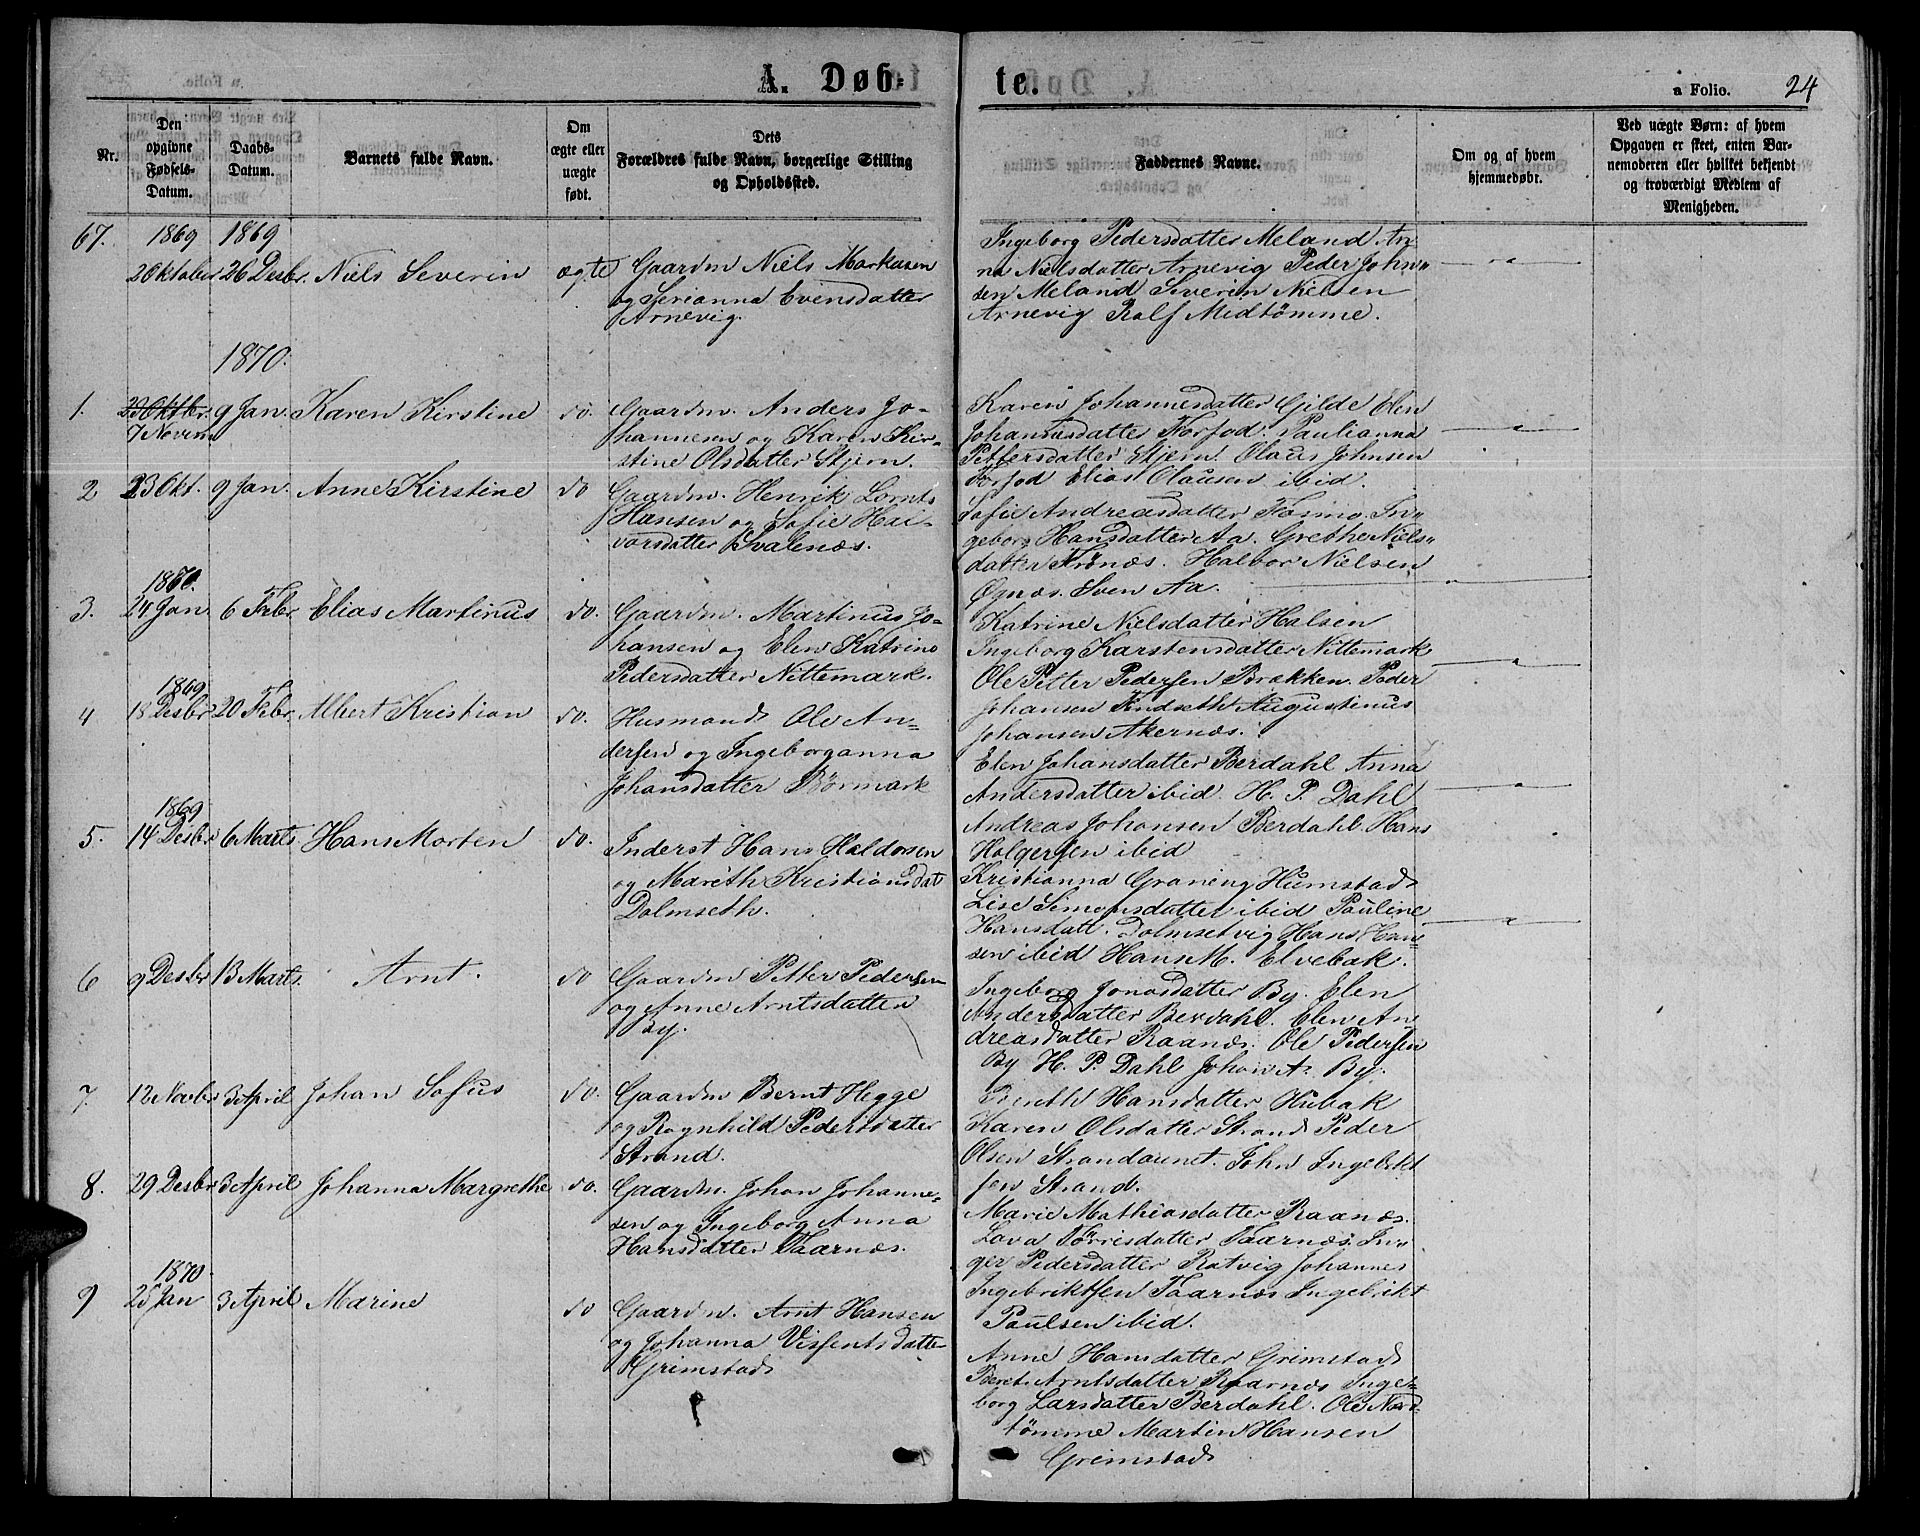 A. Døb-
te.
a Folio. 24
Nr.
Den opgivne Fødsels-Datum.
Daabs-Datum.
Barnets fulde Navn.
Om ægte eller uægte født.
Dets Forældres fulde Navn, borgerlige Stilling og Opholdssted.
Faddernes Navne.
Om og af hvem hjemmedøbt.
Ved uægte Børn: af hvem Opgaven er skeet, enten Barnemoderen eller hvilket bekjendt og troværdigt Medlem af Menigheden.
67. 1869 1869
2 Oktober 26 Desbr. Niels Severin ægte Gaardm Niels Markusen
og Serianna Evensdatter
Arnevig.
Ingeborg Pedersdatter Meland An
na Nielsdatter Arnevig Peder John„
sen Meland Severin Nielsen
Arnevig Ralf Midtømme.
1870.
1. 23 Oktbr. 9 Jan. Karen Kirstine do. Gaardm. Anders Jo-
7 Novem hannesen og Karen Kir-
stine Olsdatter Stjern.
Karen Johannesdatter Gilde Elen
Johannesdatter Forfod. Paulianna
Pettersdatter Stjern. Olaus Johnsen
Forfod Elias Olausen ibid.
2 23 Okt. 9 Jan. Anne Kirstine do Gaardm. Henrik Lornts
Hansen og Sofie Hal-
vorsdatter Svalenæs.
Sofie Andreasdatter Formo. In„
geborg Hansdatter Aa. Grethe Niels„
datter Frønæs. Halvor Nielsen
Øgnæs. Sven Aa.
1870.
3. 24 Jan. 6 Febr. Elias Martinus do. Gaardm. Martinus Jo-
hansen og Elen Katrine
Pedersdatter Nittemark.
Katrine Nielsdatter Halsen
Ingeborg Karstensdatter Nittemark
Ole Petter Pedersen Brækken. Peder
Johansen Findseth Augustinus
Johansen Akernæs.
1869
4 18 Desbr 20 Febr. Albert Kristian do. Husmand Ole An-
dersen og Ingeborganna
Johansdatter Børmark
Elen Johansdatter Berdahl Anna
Andersdatter ibid. H. P. Dahl
Andreas Johansen Berdahl. Hans
Holgersen ibid
1869
5. 14 Desbr 6 Marts Hans Morten do. Inderst Hans Haldorsen
og Mareth Kristiansdat
Dolmseth.
Kristianna Graning Humstad
Lise Simonsdatter ibid Pauline
Hansdatt. Dolmsetvig Hans Han-
sen ibid Hans M. Elvebak.
6 9 Desbr 13 Marts. Arnt. do Gaardm Petter Pedersen
og Anne Arntsdatter
By.
Ingeborg Jonasdatter By. Elen
Andersdatter Berdahl. Elen An
dreasdatter Raanæs. Ole Pedersen
By H. P. Dahl Johan A. By.
7. 12 Novbr 3 April Johan Sofus do. Gaardm Bernt Hegge
og Ragnhild Pedersdatter
Strand.
Bereth Hansdatter Hubak
Karen Olsdatter Strand Peder
Olsen Strandaunet. John Ingebrikt
sen Strand.
8. 29 Desbr 3 April Johanna Margrethe do. Gaardm. Johan Johanne-
sen og Ingeborg Anna
Hansdatter Taarnæs.
Marie Mathiasdatter Raanæs.
Lava Torrisdatter Taarnæs. In„
ger Pedersdatter Ratvig Johannes
Ingebriktsen Taarnæs Ingebrikt
Paulsen ibid.
1870.
9 25 Jan 3 April Marine do Gaardm. Arnt Hansen
og Johanna Visfentsdatte
Grimstad
Anne Hansdatter Grimstad
Beret Arntsdatter Raarnæs Inge-
borg Larsdatter Berdahl. Ole Nord
tømme Martin Hansen
Grimstad